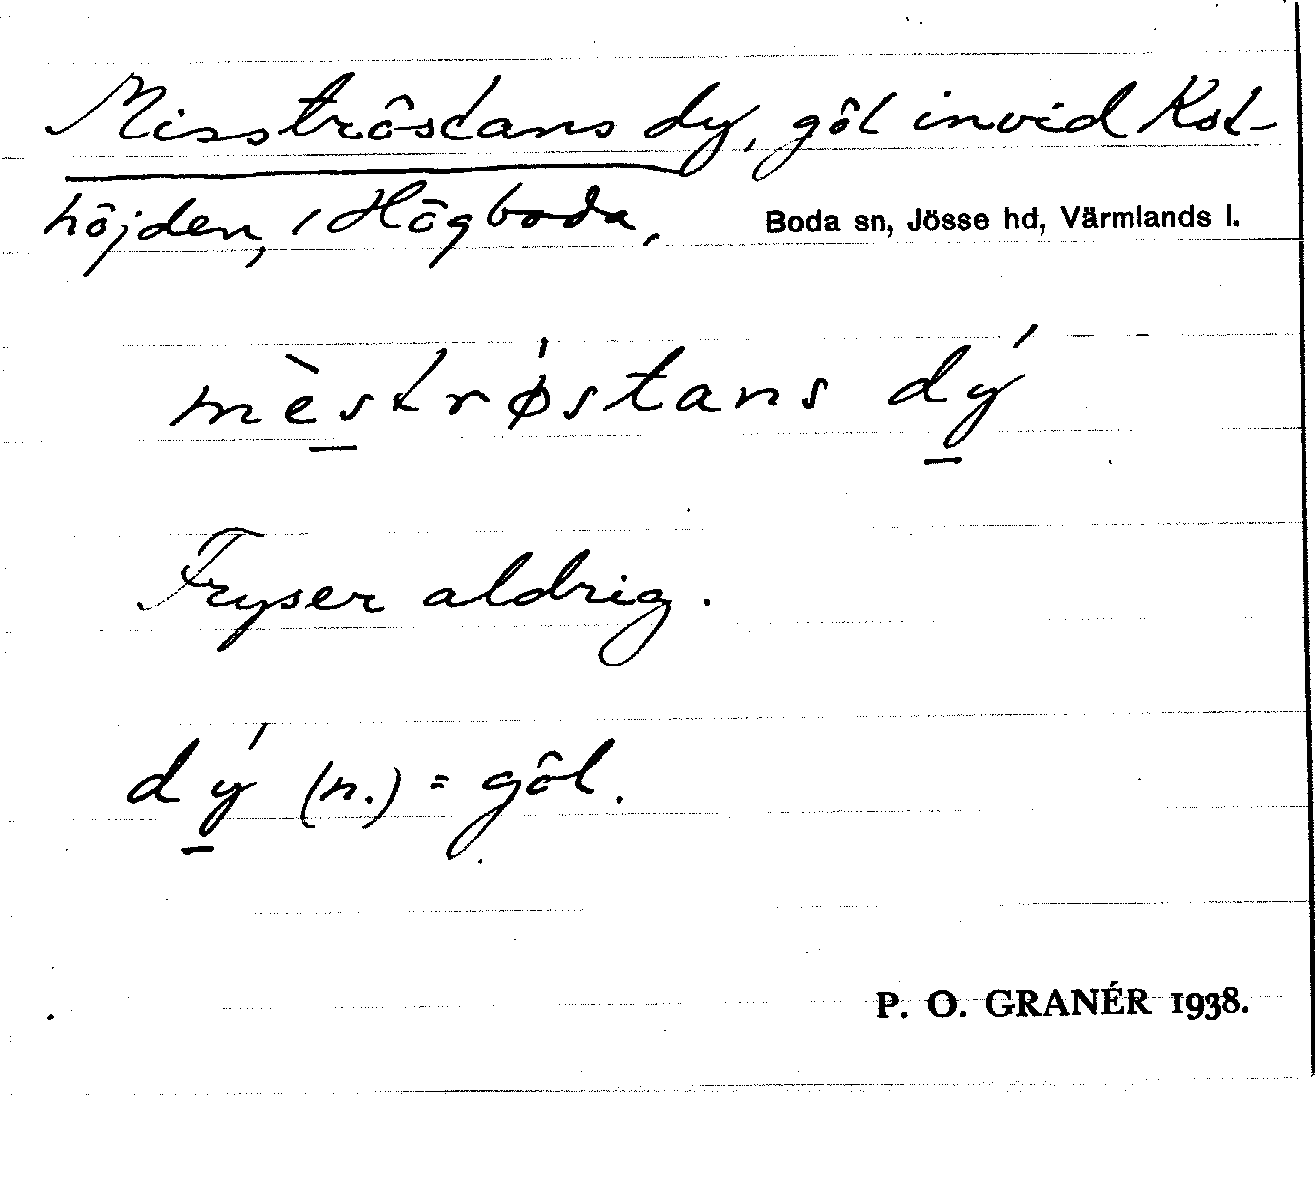 Misströstans dy, göl invid Kol-
höjden, i Högboda, Boda sn, Jösse hd, Värmlands l.
mèstrø̍stans dý
Fryser aldrig.
dý (n.) = göl.
P. O. GRANÉR 1938.